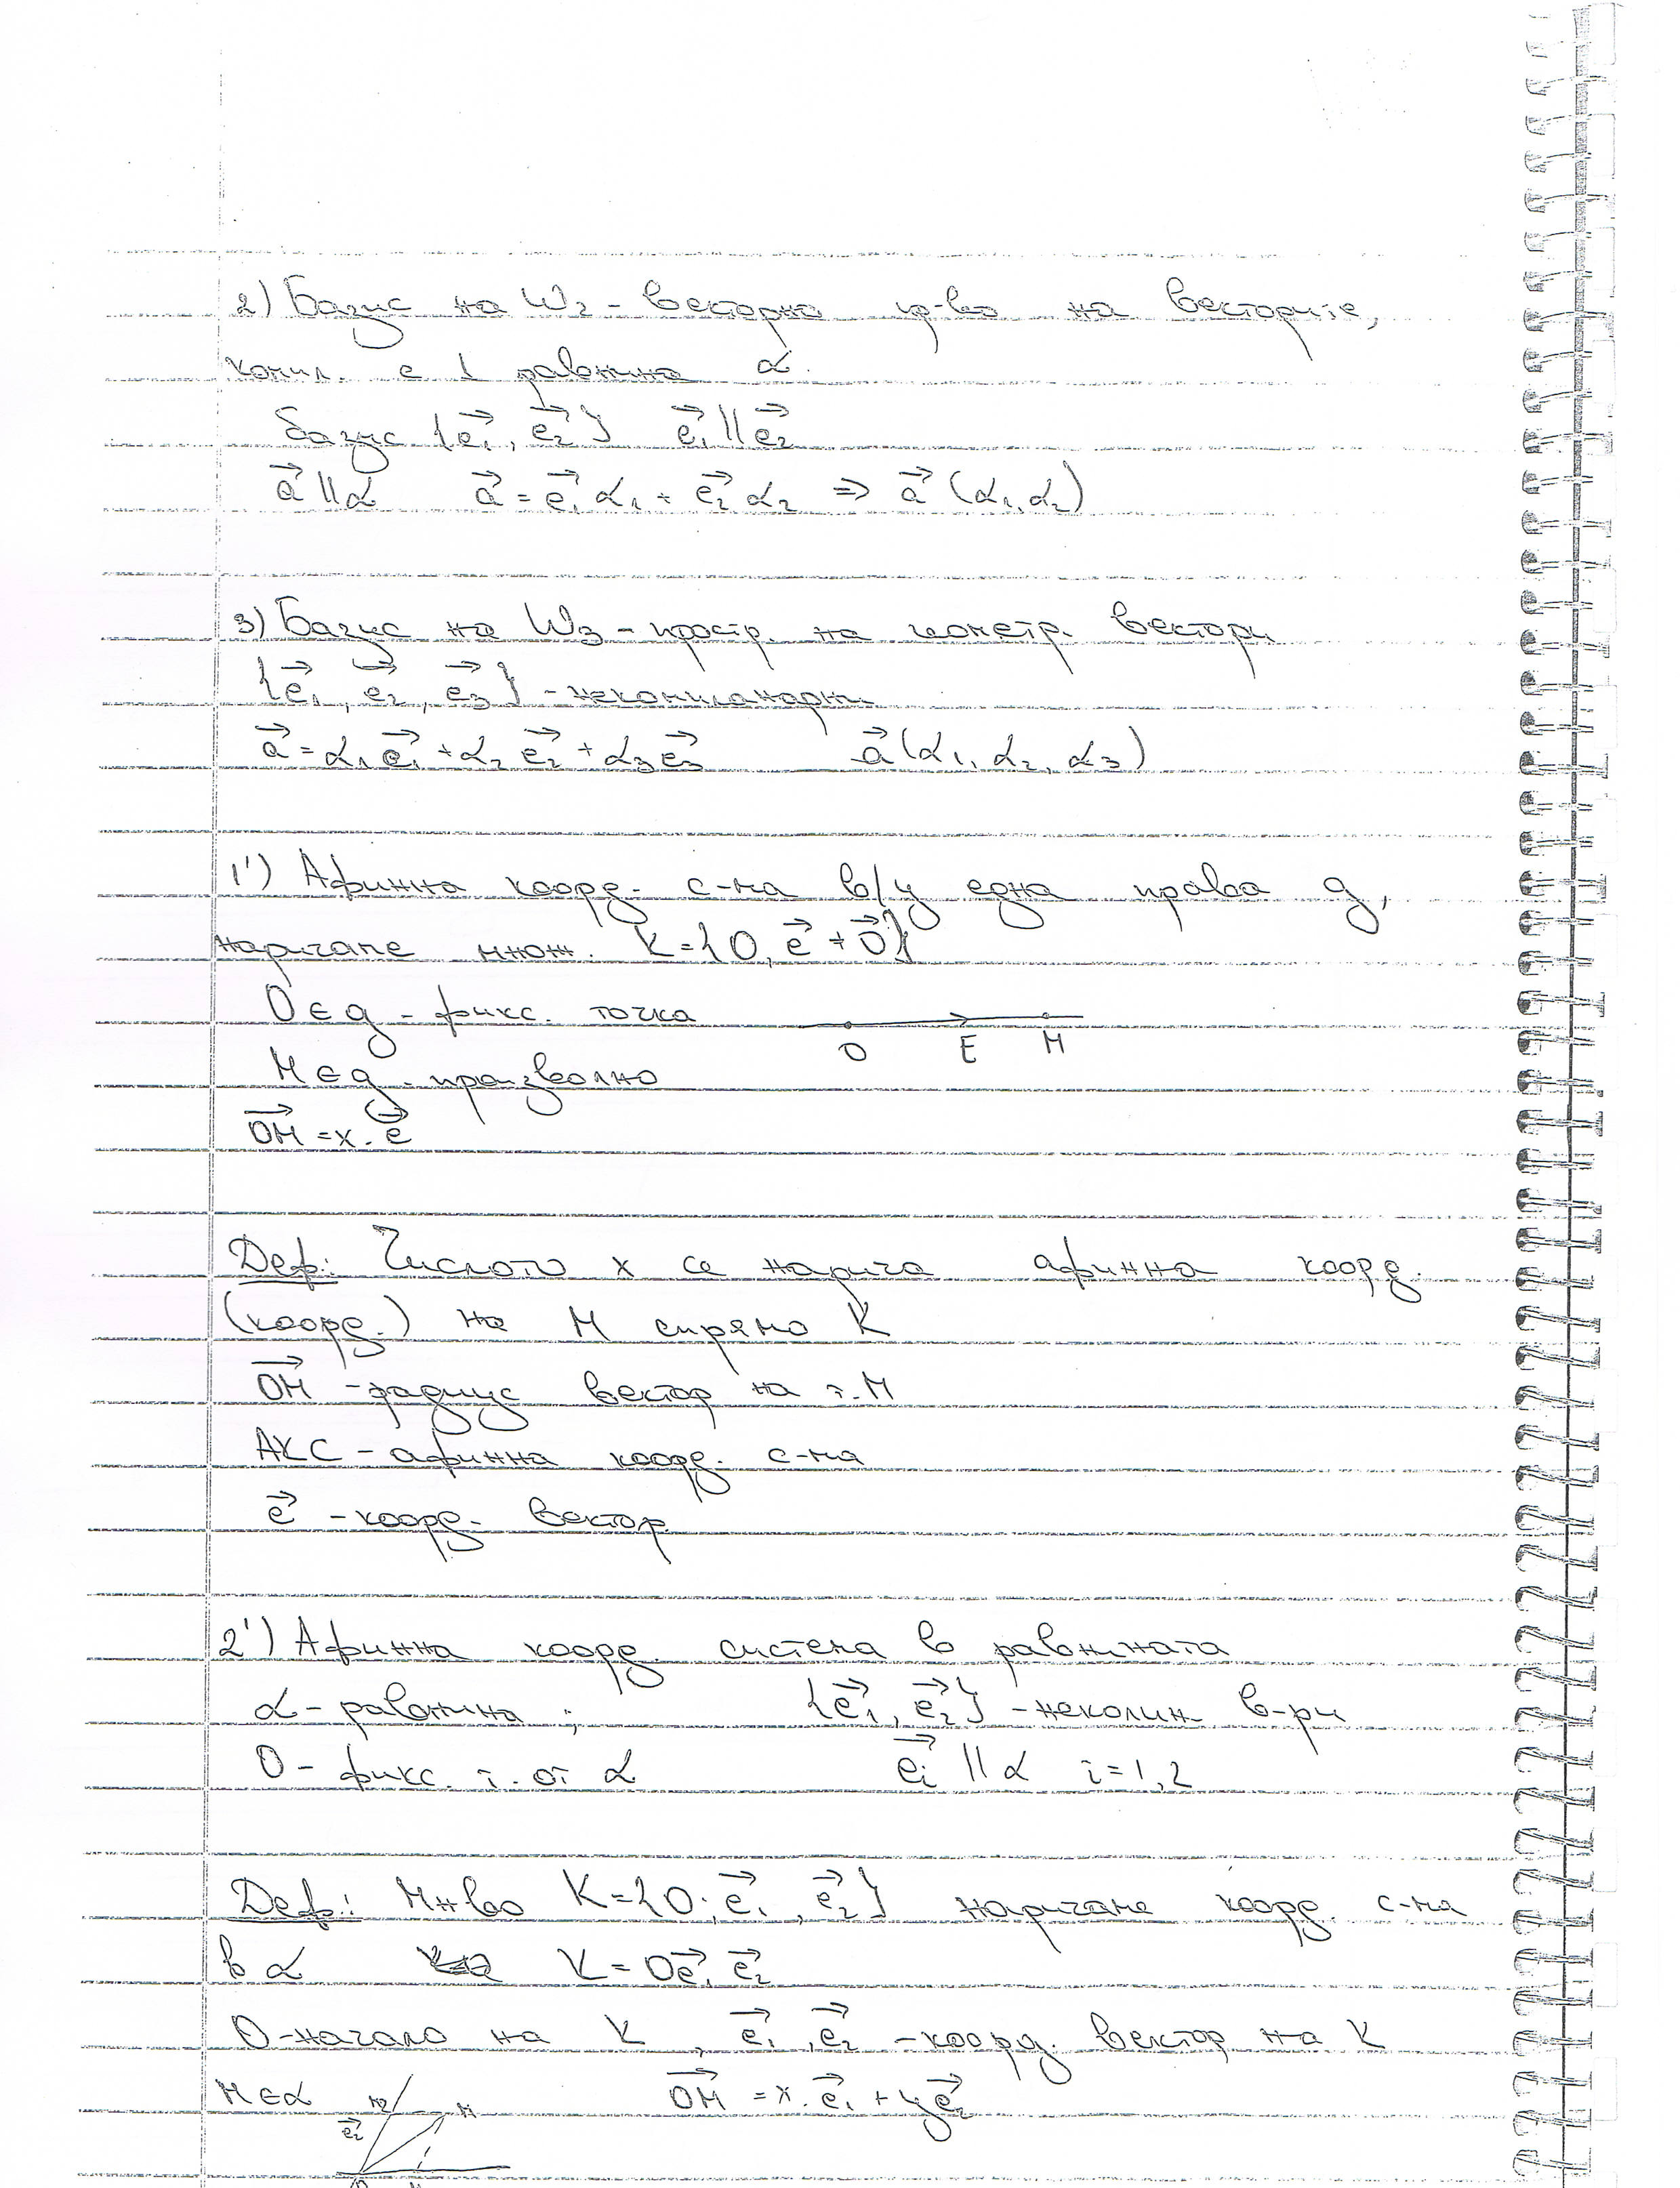 2) Базис на W₂ - векторно пр-во на векторите,
компл. с 1 равнина α.
базис {e₁⃗, e₂⃗} e₁⃗ ∦ e₂⃗
a⃗ ∥ α a⃗ = e₁⃗ α₁ + e₂⃗ α₂ ⇒ a⃗ (α₁, α₂)
3) Базис на W₃ - простр. на геометр. вектори
{e₁⃗, e₂⃗, e₃⃗} - некомпланарни
a⃗ = α₁e₁⃗ + α₂e₂⃗ + α₃e₃⃗ a⃗ (α₁, α₂, α₃)
1') Афинна коорд. с-ма в/у една права g,
наричаме множ. K = {O, e⃗ ≠ 0⃗}
O ∈ g - фикс. точка
O E M
M ∈ g - произволно
OM⃗ = x. e⃗
Деф: Числото x се нарича афинна коорд.
(коорд.) на M спрямо K
OM⃗ - радиус вектор на т. M
АКС - афинна коорд. с-ма
e⃗ - коорд. вектор
2') Афинна коорд. система в равнината
α - равнина ; {e₁⃗, e₂⃗} - неколин. в-ри
O - фикс. т. от α eᵢ⃗ ∥ α i = 1, 2
Деф.: Мн-во K = {O; e₁⃗, e₂⃗} наричаме коорд. с-ма
в α K = Oe₁⃗ e₂⃗
O - начало на K, e₁⃗, e₂⃗ - коорд. вектор на K
M ∈ α OM⃗ = x. e₁⃗ + y e₂⃗
M₂ M
e₂⃗